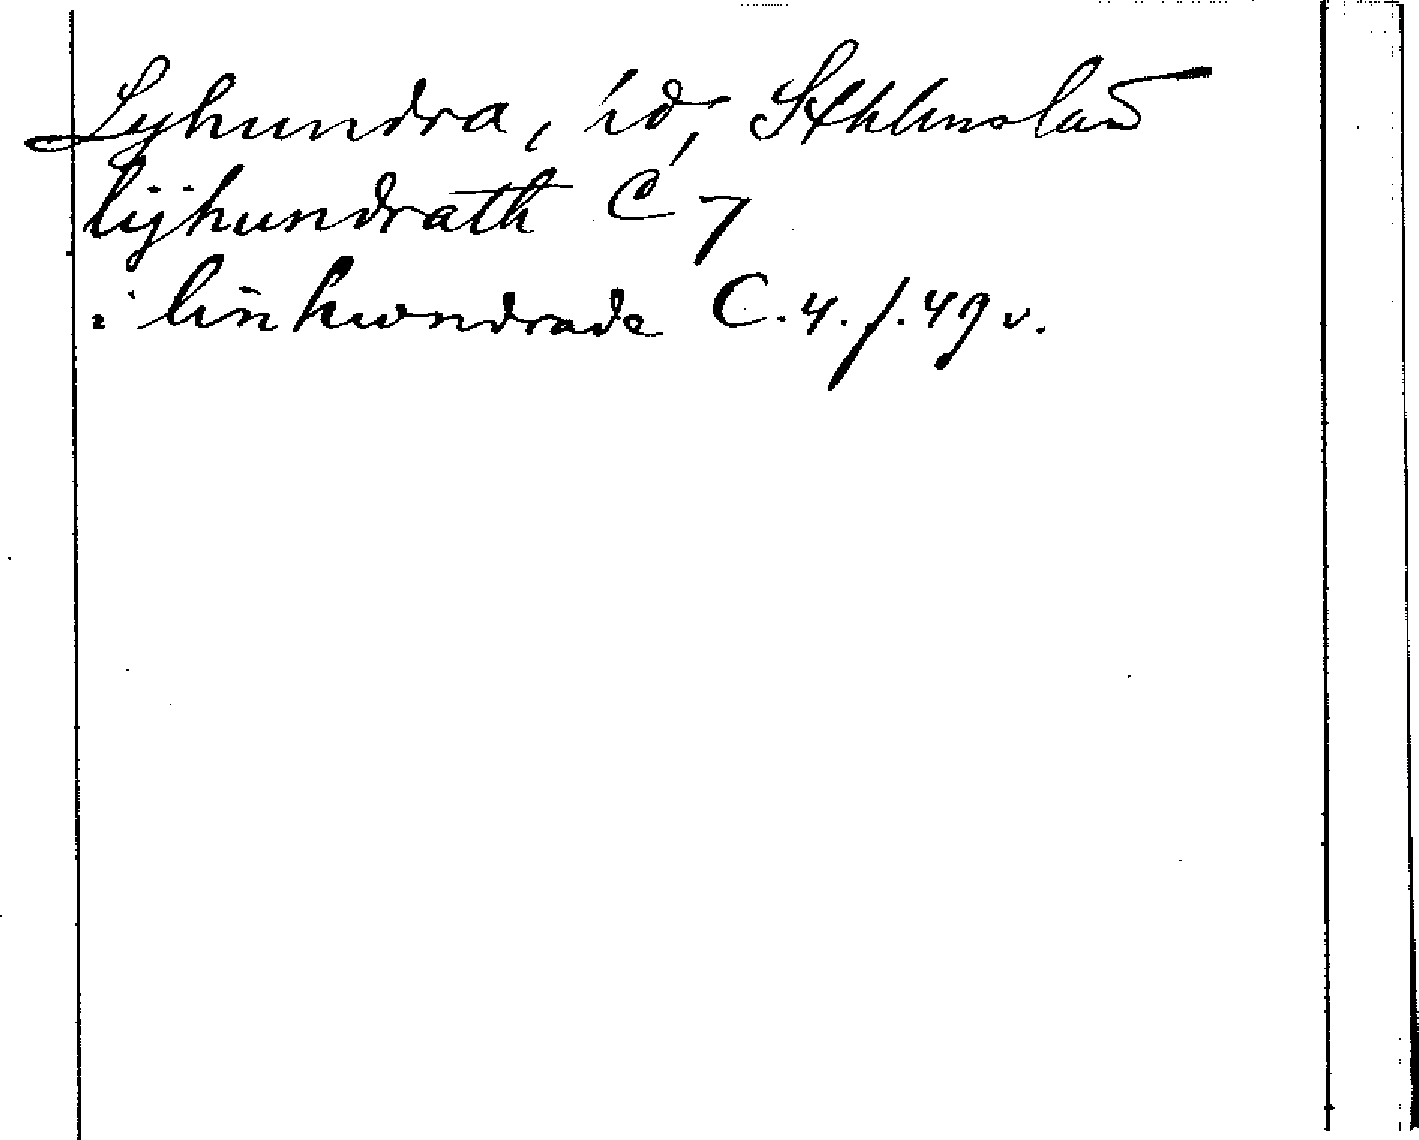 Lyhundra, hd, Sthlmslän
lÿhundrath C 7
i linhwndrade C. 4. f. 49 v.